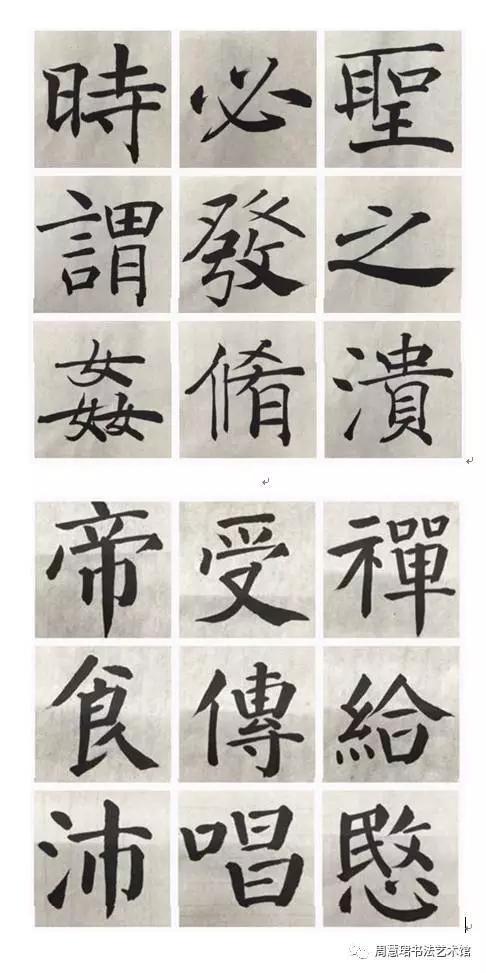 時必聖
謂發之
姦脩潰
帝受禪
食傳給
沛唱愍
周慧珺书法艺术馆